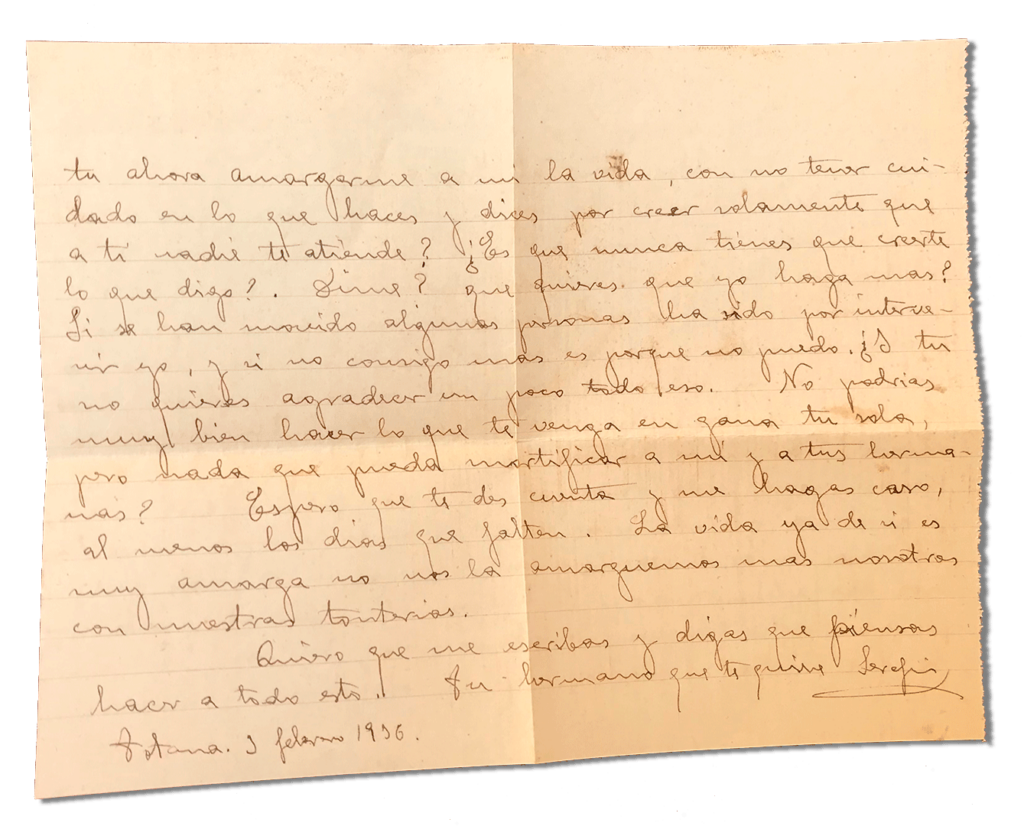 tu ahora amargarme a mi la vida, con no tener cui-
dado en lo que haces y dices por creer solamente que
a ti nadie te atiende? ¿Es que nunca tienes que creerte
lo que digo?. Dime? que quieres que yo haga mas?
Si se han movido algunas personas ha sido por interve-
nir yo, y si no consigo mas es porque no puedo. ¿Y tu
no quieres agradecer un poco todo eso. No podrias
muy bien hacer lo que te venga en gana tu sola,
pero nada que pueda mortificar a mi y a tus herma-
nas? Espero que te des cuenta y me hagas caso,
al menos los dias que falten. La vida ya de si es
muy amarga no nos la amarguemos mas nosotros
con nuestras tonterias.
Quiero que me escribas y digas que piensas
hacer a todo esto. Tu hermano que te quiere Serafin
Totana. 3 febrero 1936.